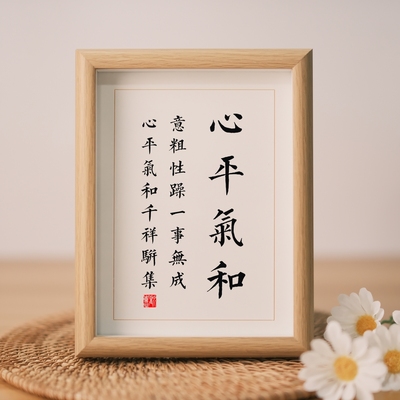 心平氣和
意粗性躁一事無成
心平氣和千祥駢集